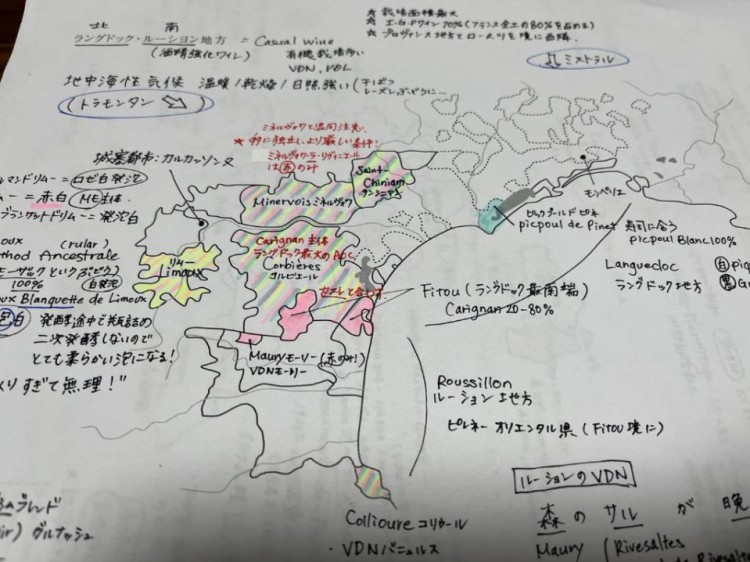 北 南
ラングドック・ルーション地方 = Casual wine
(酒精強化ワイン) 有機栽培多い
VDN, VDL
★ 栽培面積最大
★ I.G.Pワイン 70% (フランス全土の80%を占める)
★ プロヴァンス地方とローヌ川を境に西隣。
ミストラル
地中海性気候 温暖/乾燥/日照強い(干ばつ
トラモンタン
ミネルヴォワと混同注意。
★ 特に独立し、より厳しい条件!
ミネルヴォワ・ラ・リヴィニエール
は赤のみ
城塞都市:カルカッソンヌ
ルマンドリムー = ロゼ白発泡
ムー = 赤・白 ME主体。
ブランケットドリムー = 発泡白
oux (rular)
thod Ancestrale
100% 白発泡
oux Blanquette de Limoux
白 発酵途中で瓶詰め
二次発酵しないので
とても柔らかい泡になる!
すぎて無理!"
Saint-
Chinian
サンシニアン
Minervois ミネルヴォワ
リムー
Limoux
Carignan 主体
ラングドック最大のAOC
Corbières
コルビエール
Maury モーリー (赤のみ!)
VDN モーリー
モンペリエ
ピクプールドピネ
picpoul de Pinet
寿司に合う
Picpoul Blanc 100%
Languedoc
ラングドック地方
Fitou (ラングドック最南端)
Carignan 20-80%
Roussillon
ルーション地方
ピレネー オリエンタル県 (Fitou境に)
ルーションのVDN
森のサルが晩
Maury (Rivesaltes
Collioure コリウール
・VDN バニュルス
ブレンド
ir) グルナッシュ